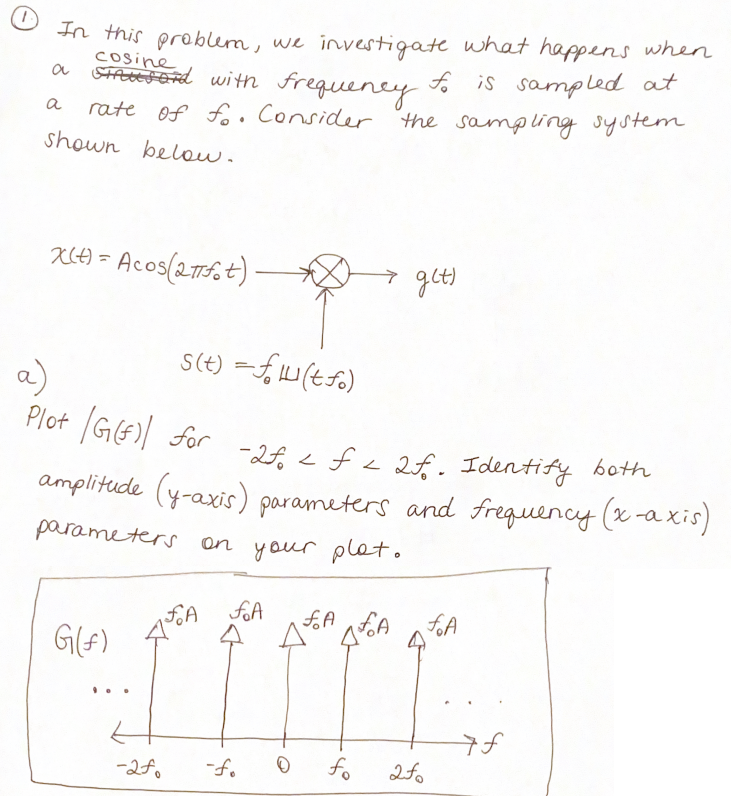 1.
In this problem, we investigate what happens when
cosine
a sinusoid with frequency f₀ is sampled at
a rate of f₀. Consider the sampling system
shown below.
x(t) = Acos(2πf₀t)
g(t)
s(t) = f₀ Ш(t f₀)
a)
Plot |G(f)| for -2f₀ < f < 2f₀. Identify both
amplitude (y-axis) parameters and frequency (x-axis)
parameters on your plot.
f₀A f₀A f₀A f₀A f₀A
G(f)
... ....
f
-2f₀ -f₀ 0 f₀ 2f₀